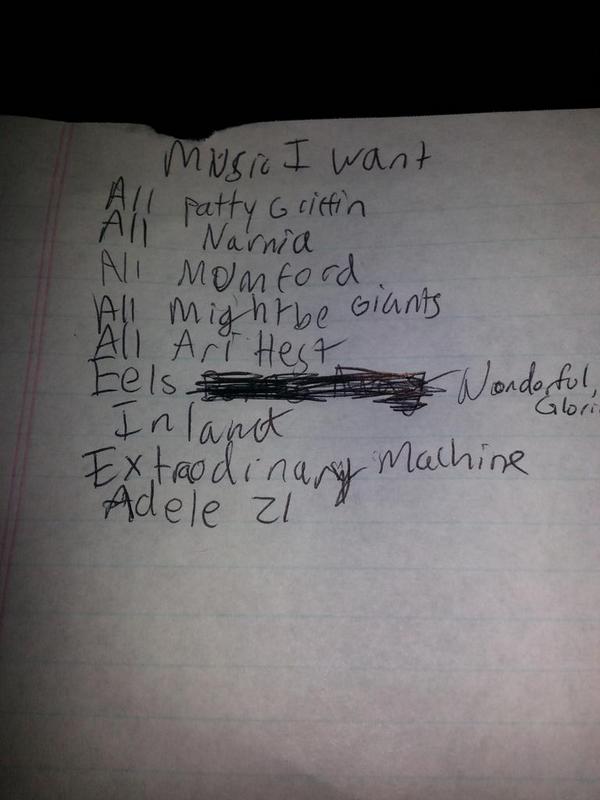 Music I want
All Patty Griffin
All Narnia
All Momford
All Mightbe Giants
All Ari Hest
Eels Wonderful,
Glori
Inland
Extraodinary Machine
Adele 21